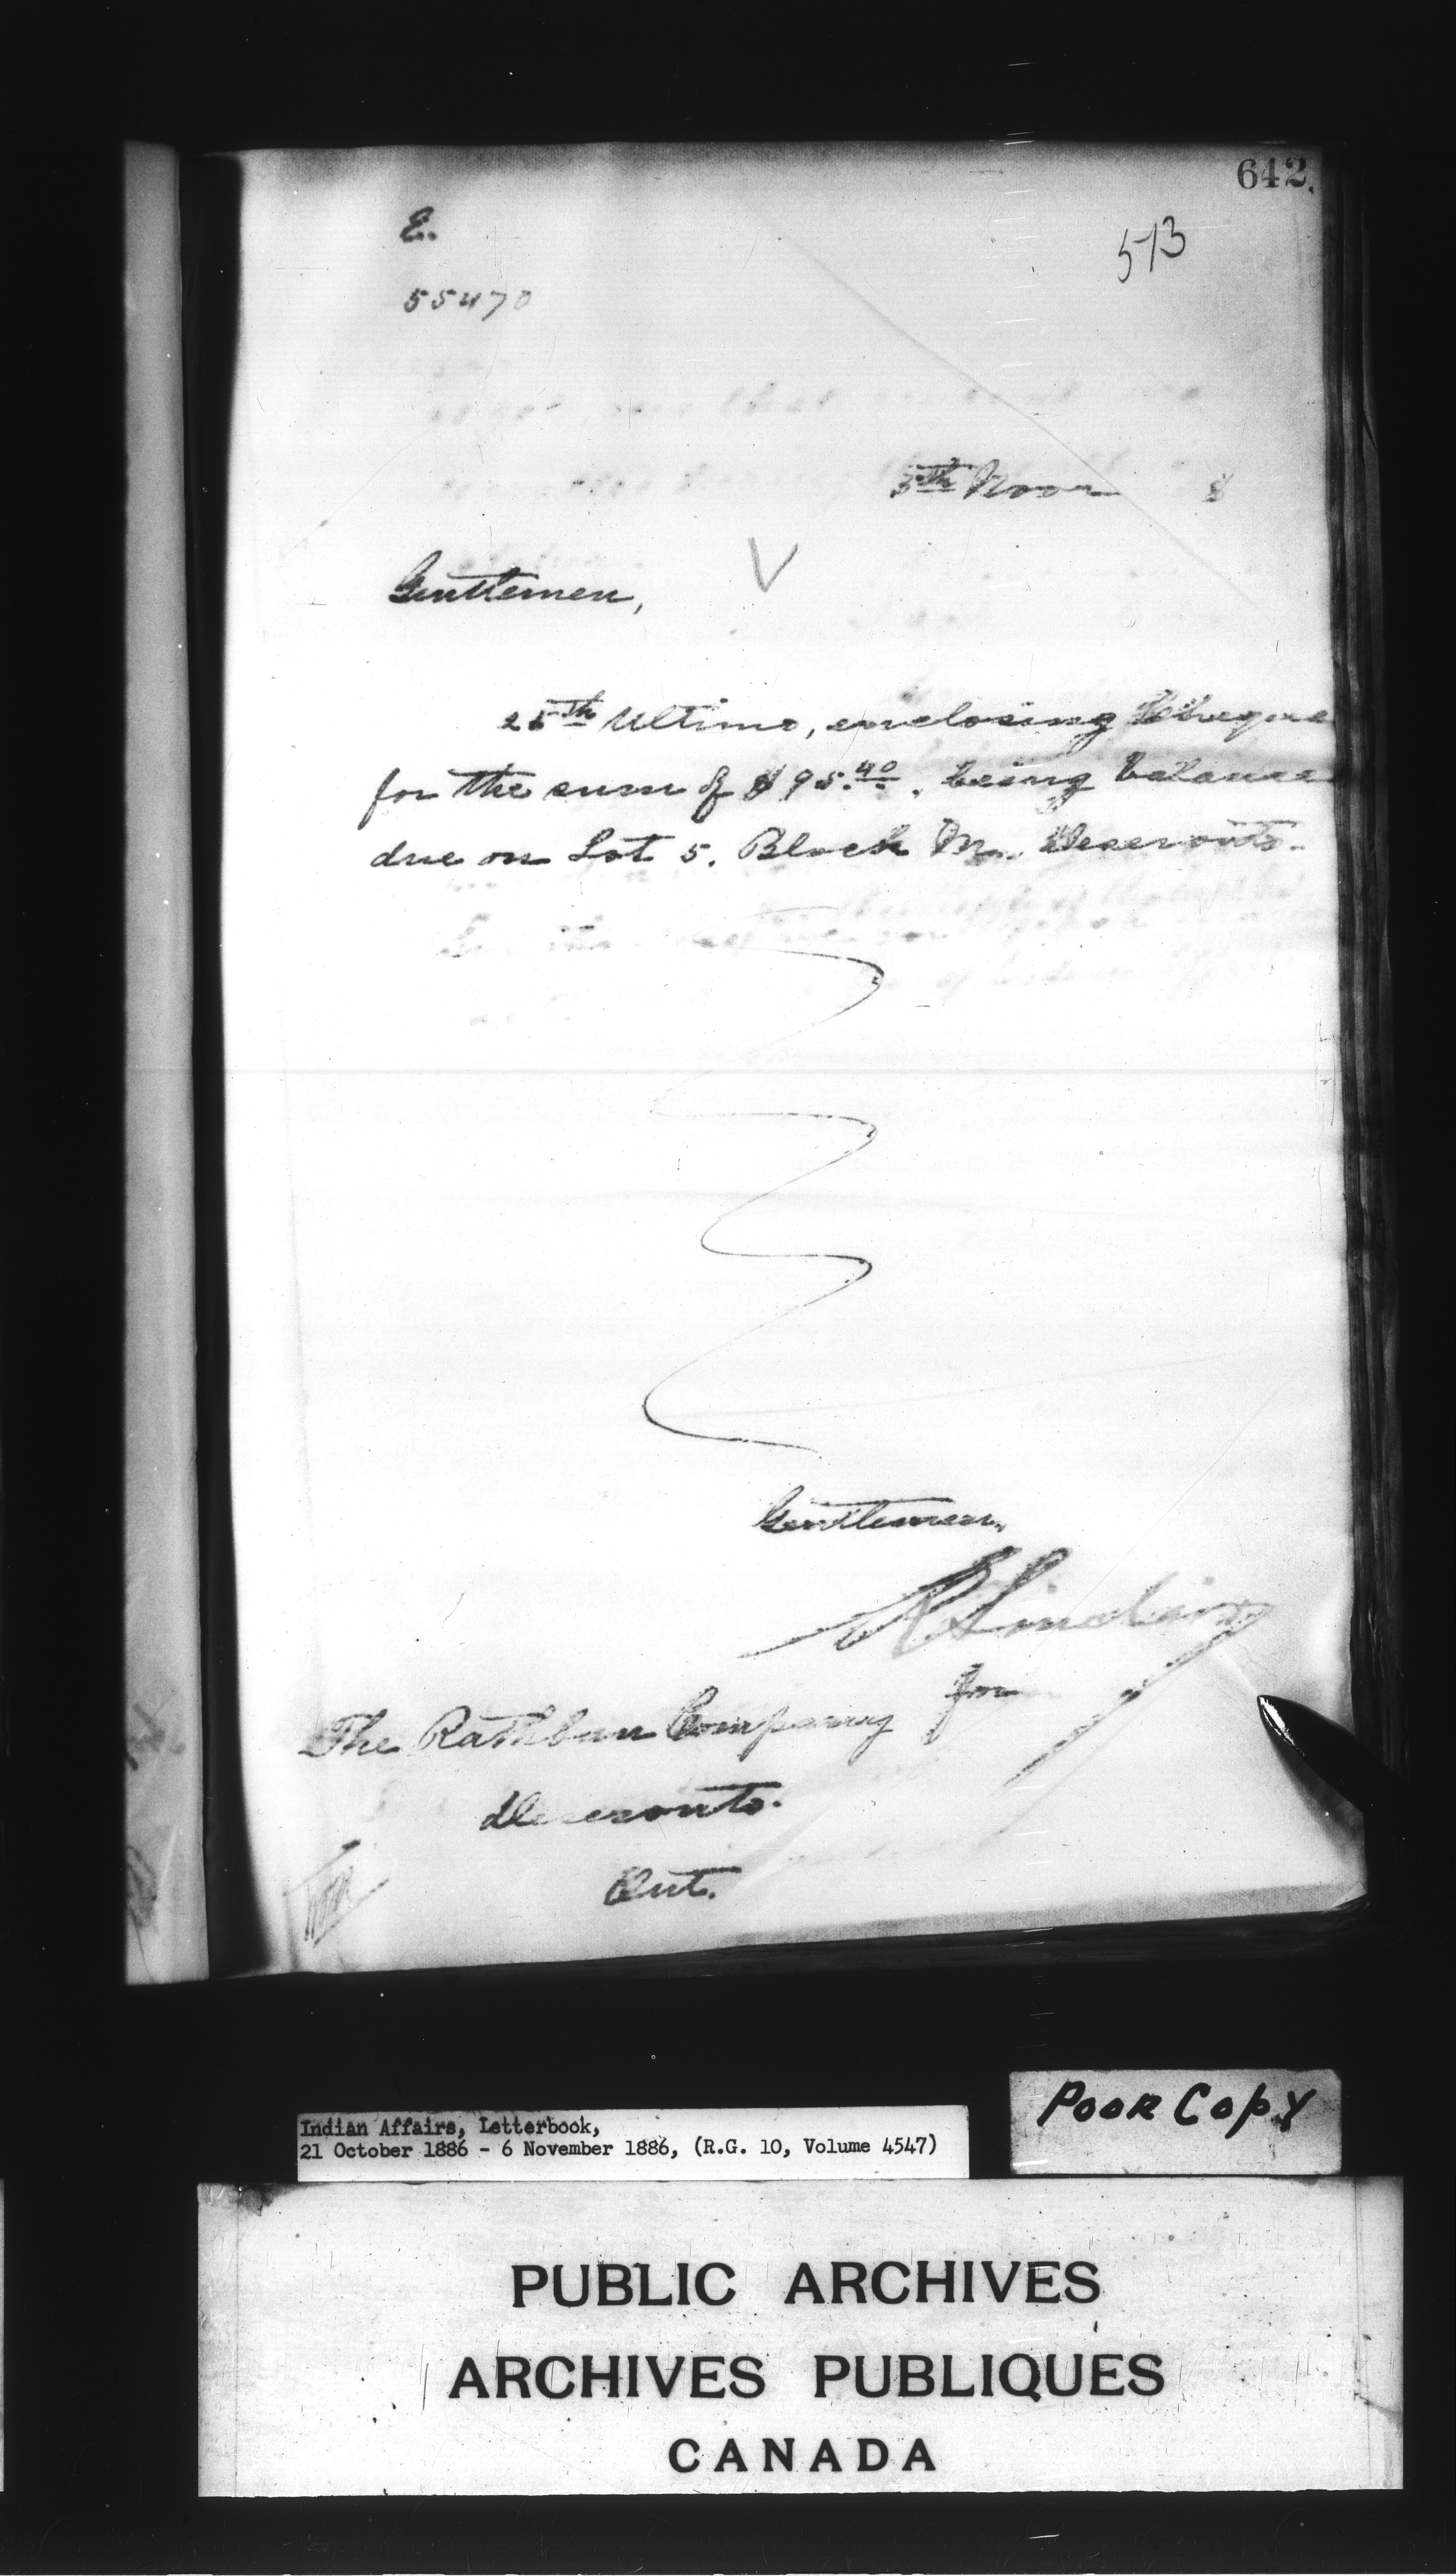 642.
513
E.
55470
5th Novr 8
Gentlemen,
25th Ultimo, enclosing Cheque
for the sum of $95.40, being balance
due on Lot 5. Block M. Deseronto.
Gentlemen,
R Sinclair
for
The Rathbun Company
Deseronto.
Ont.
POOR COPY
Indian Affairs, Letterbook,
21 October 1886 - 6 November 1886, (R.G. 10, Volume 4547)
PUBLIC ARCHIVES
ARCHIVES PUBLIQUES
CANADA